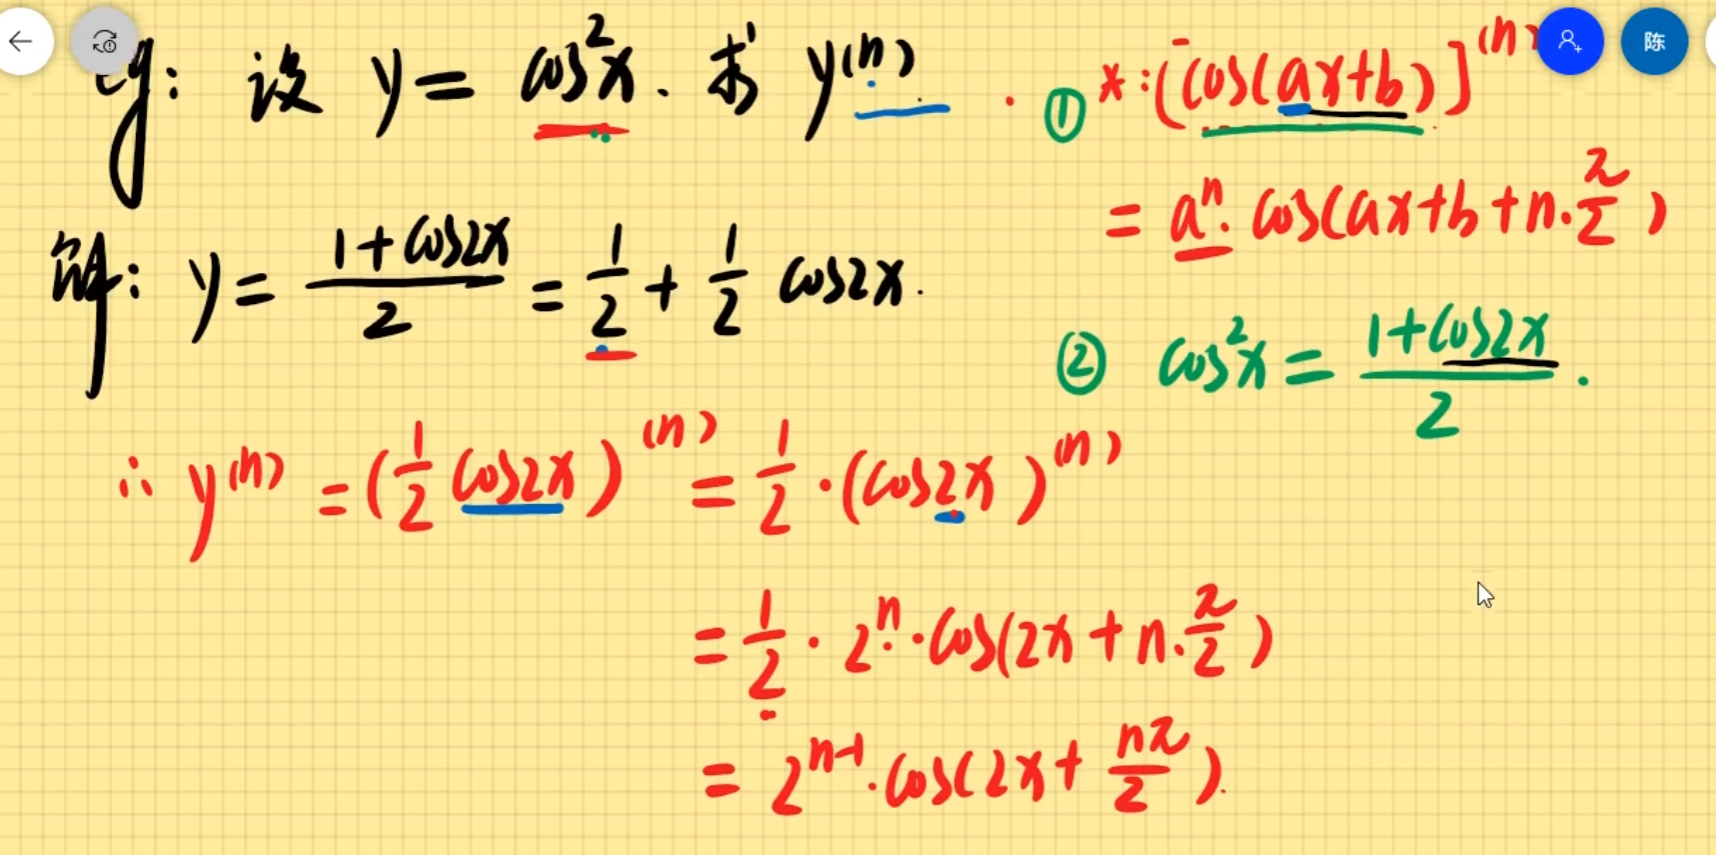 eg: 设 y = cos²x. 求 y⁽ⁿ⁾.
① *: [cos(ax+b)]⁽ⁿ⁾
= aⁿ · cos(ax+b+n·π/2)
解: y = (1+cos2x)/2 = 1/2 + 1/2 cos2x.
② cos²x = (1+cos2x)/2.
∴ y⁽ⁿ⁾ = (1/2 cos2x)⁽ⁿ⁾ = 1/2 · (cos2x)⁽ⁿ⁾
= 1/2 · 2ⁿ · cos(2x + n·π/2)
= 2ⁿ⁻¹ · cos(2x + nπ/2).
陈